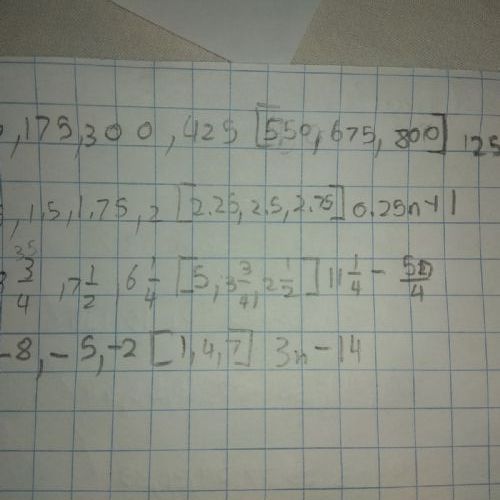 ,175,300,425 [550,675,800] 125
, 1.5, 1.75, 2 [2.25, 2.5, 2.75] 0.25n+1
3/4, 7 1/2, 6 1/4 [5, 3 3/4, 2 1/2] 11 1/4 - 5n/4
-8, -5, -2 [1,4,7] 3n-14